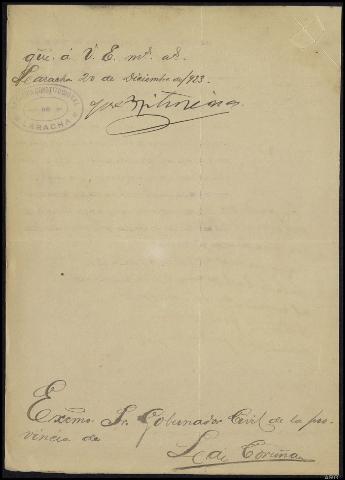 gue. á V. E. ms. as.
Laracha 20 de Diciembre de 1923.
CONSTITUCIONAL
DE
LARACHA
Exсmo Sr. Gobernador Civil de la pro-
vincia de
La Coruña